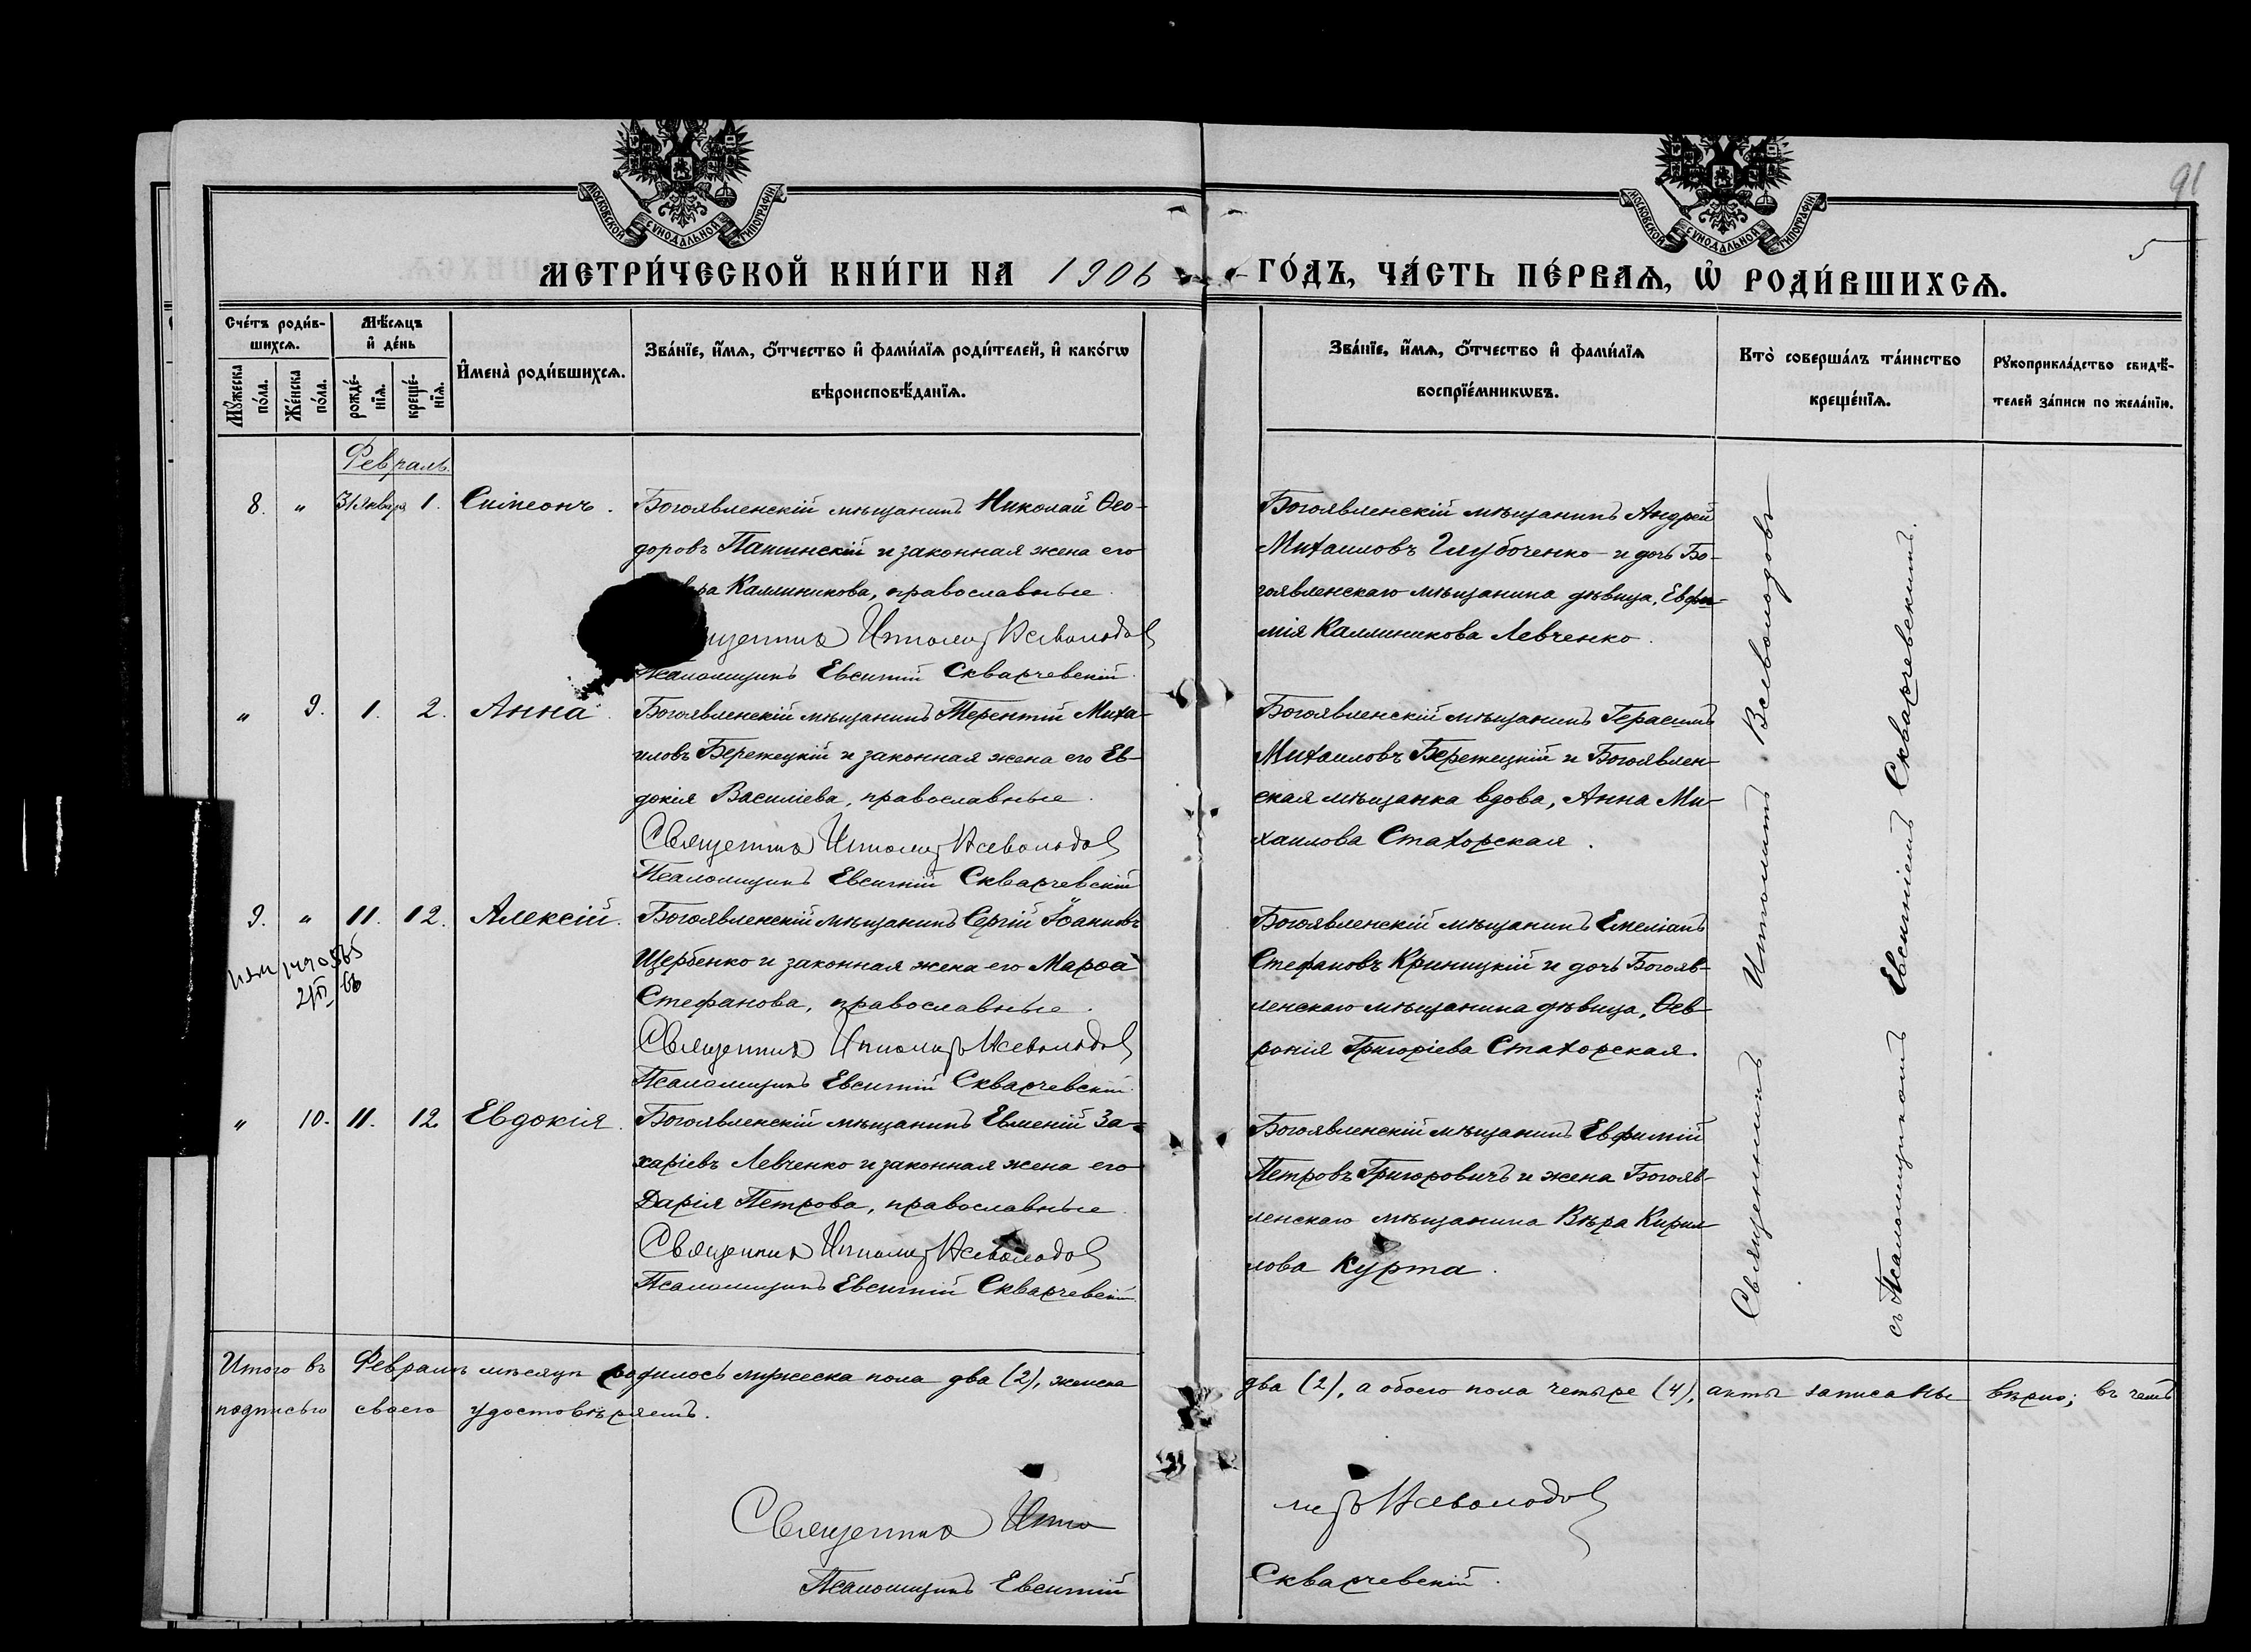 91
5
МОСКОВСКОЙ СѴНОДАЛЬНОЙ ТИПОГРАФІИ
МОСКОВСКОЙ СѴНОДАЛЬНОЙ ТИПОГРАФІИ
МЕТРИ́ЧЕСКОЙ КНИ́ГИ НА 1906 ГО́ДЪ, ЧА́СТЬ ПЕ́РВАѦ, Ѡ҆ РОДИ́ВШИХСѦ.
Сче́тъ роди́в-
шихсѧ.
Мѣ́сѧцъ
и҆ де́нь
Мꙋ́жеска
по́ла.
Же́нска
по́ла.
рожде́-
нїѧ.
креще́-
нїѧ.
И҆мена̀ роди́вшихсѧ.
Зва́нїе, и҆́мѧ, ѻ҆́тчество и҆ фами́лїѧ роди́телей, и҆ како́гѡ
вѣроисповѣ́данїѧ.
Зва́нїе, и҆́мѧ, ѻ҆́тчество и҆ фами́лїѧ
воспрїе́мникѡвъ.
Кто̀ соверша́лъ та́инство
креще́нїѧ.
Рꙋкоприкла́дство свидѣ́-
телей за́писи по жела́нїю.
Февраль.
8. " 31 Января 1. Симеонъ.
Богоявленскій мѣщанинъ Николай Ѳео-
доровъ Пашинскій и законная жена его
Каллиникова, православные.
Ипполитъ Всеволодов
Псаломщикъ Евсигній Скварчевскій.
Богоявленскій мѣщанинъ Андрей
Михаиловъ Глубоченко и дочь Бо-
гоявленскаго мѣщанина дѣвица, Евфи-
мія Каллиникова Левченко.
" 9. 1. 2. Анна.
Богоявленскій мѣщанинъ Терентій Миха-
иловъ Бережецкій и законная жена его Ев-
докія Василіева, православные.
Священник Ипполит Всеволодов
Псаломщикъ Евсигній Скварчевскій
Богоявленскій мѣщанинъ Герасимъ
Михаиловъ Бережецкій и Богоявлен-
ская мѣщанка вдова, Анна Ми-
хаилова Стахорская.
9. " 11. 12. Алексій.
Богоявленскій мѣщанинъ Сергій Іоанновъ
Щербенко и законная жена его Марѳа
Стефанова, православные.
Священник Ипполитъ Всеволодов
Псаломщикъ Евсигній Скварчевскій.
Богоявленскій мѣщанинъ Емеліанъ
Стефановъ Криницкій и дочь Богояв-
ленскаго мѣщанина дѣвица, Ѳев-
ронія Григоріева Стахорская.
" 10. 11. 12. Евдокія.
Богоявленскій мѣщанинъ Евменій За-
харіевъ Левченко и законная жена его
Дарія Петрова, православные.
Священник Ипполит Всеволодов
Псаломщикъ Евсигній Скварчевскій.
Богоявленскій мѣщанинъ Евфимій
Петровъ Григоровичъ и жена Богояв-
ленскаго мѣщанина Вѣра Кирил-
лова Курта.
Священникъ Ипполитъ Всеволодовъ
съ Псаломщикомъ Евсигніемъ Скварчевскимъ.
Итого въ Февралѣ мѣсяцѣ родилось мужеска пола два (2), женска два (2), а обоего пола четыре (4), акты записаны вѣрно; въ чемъ
подписью своею удостовѣряемъ.
Священник Ипполитъ Всеволодов
Псаломщикъ Евсигній Скварчевскій.